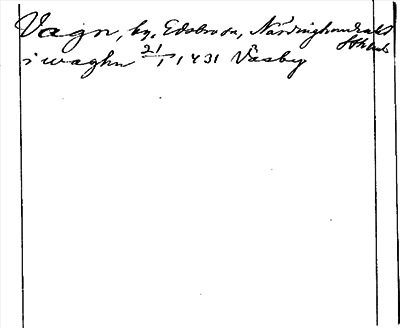 Vagn, by, Edsbro sn, Närdinghundra hd
Sthms l.
i waghn 21/1 1431 Väsby